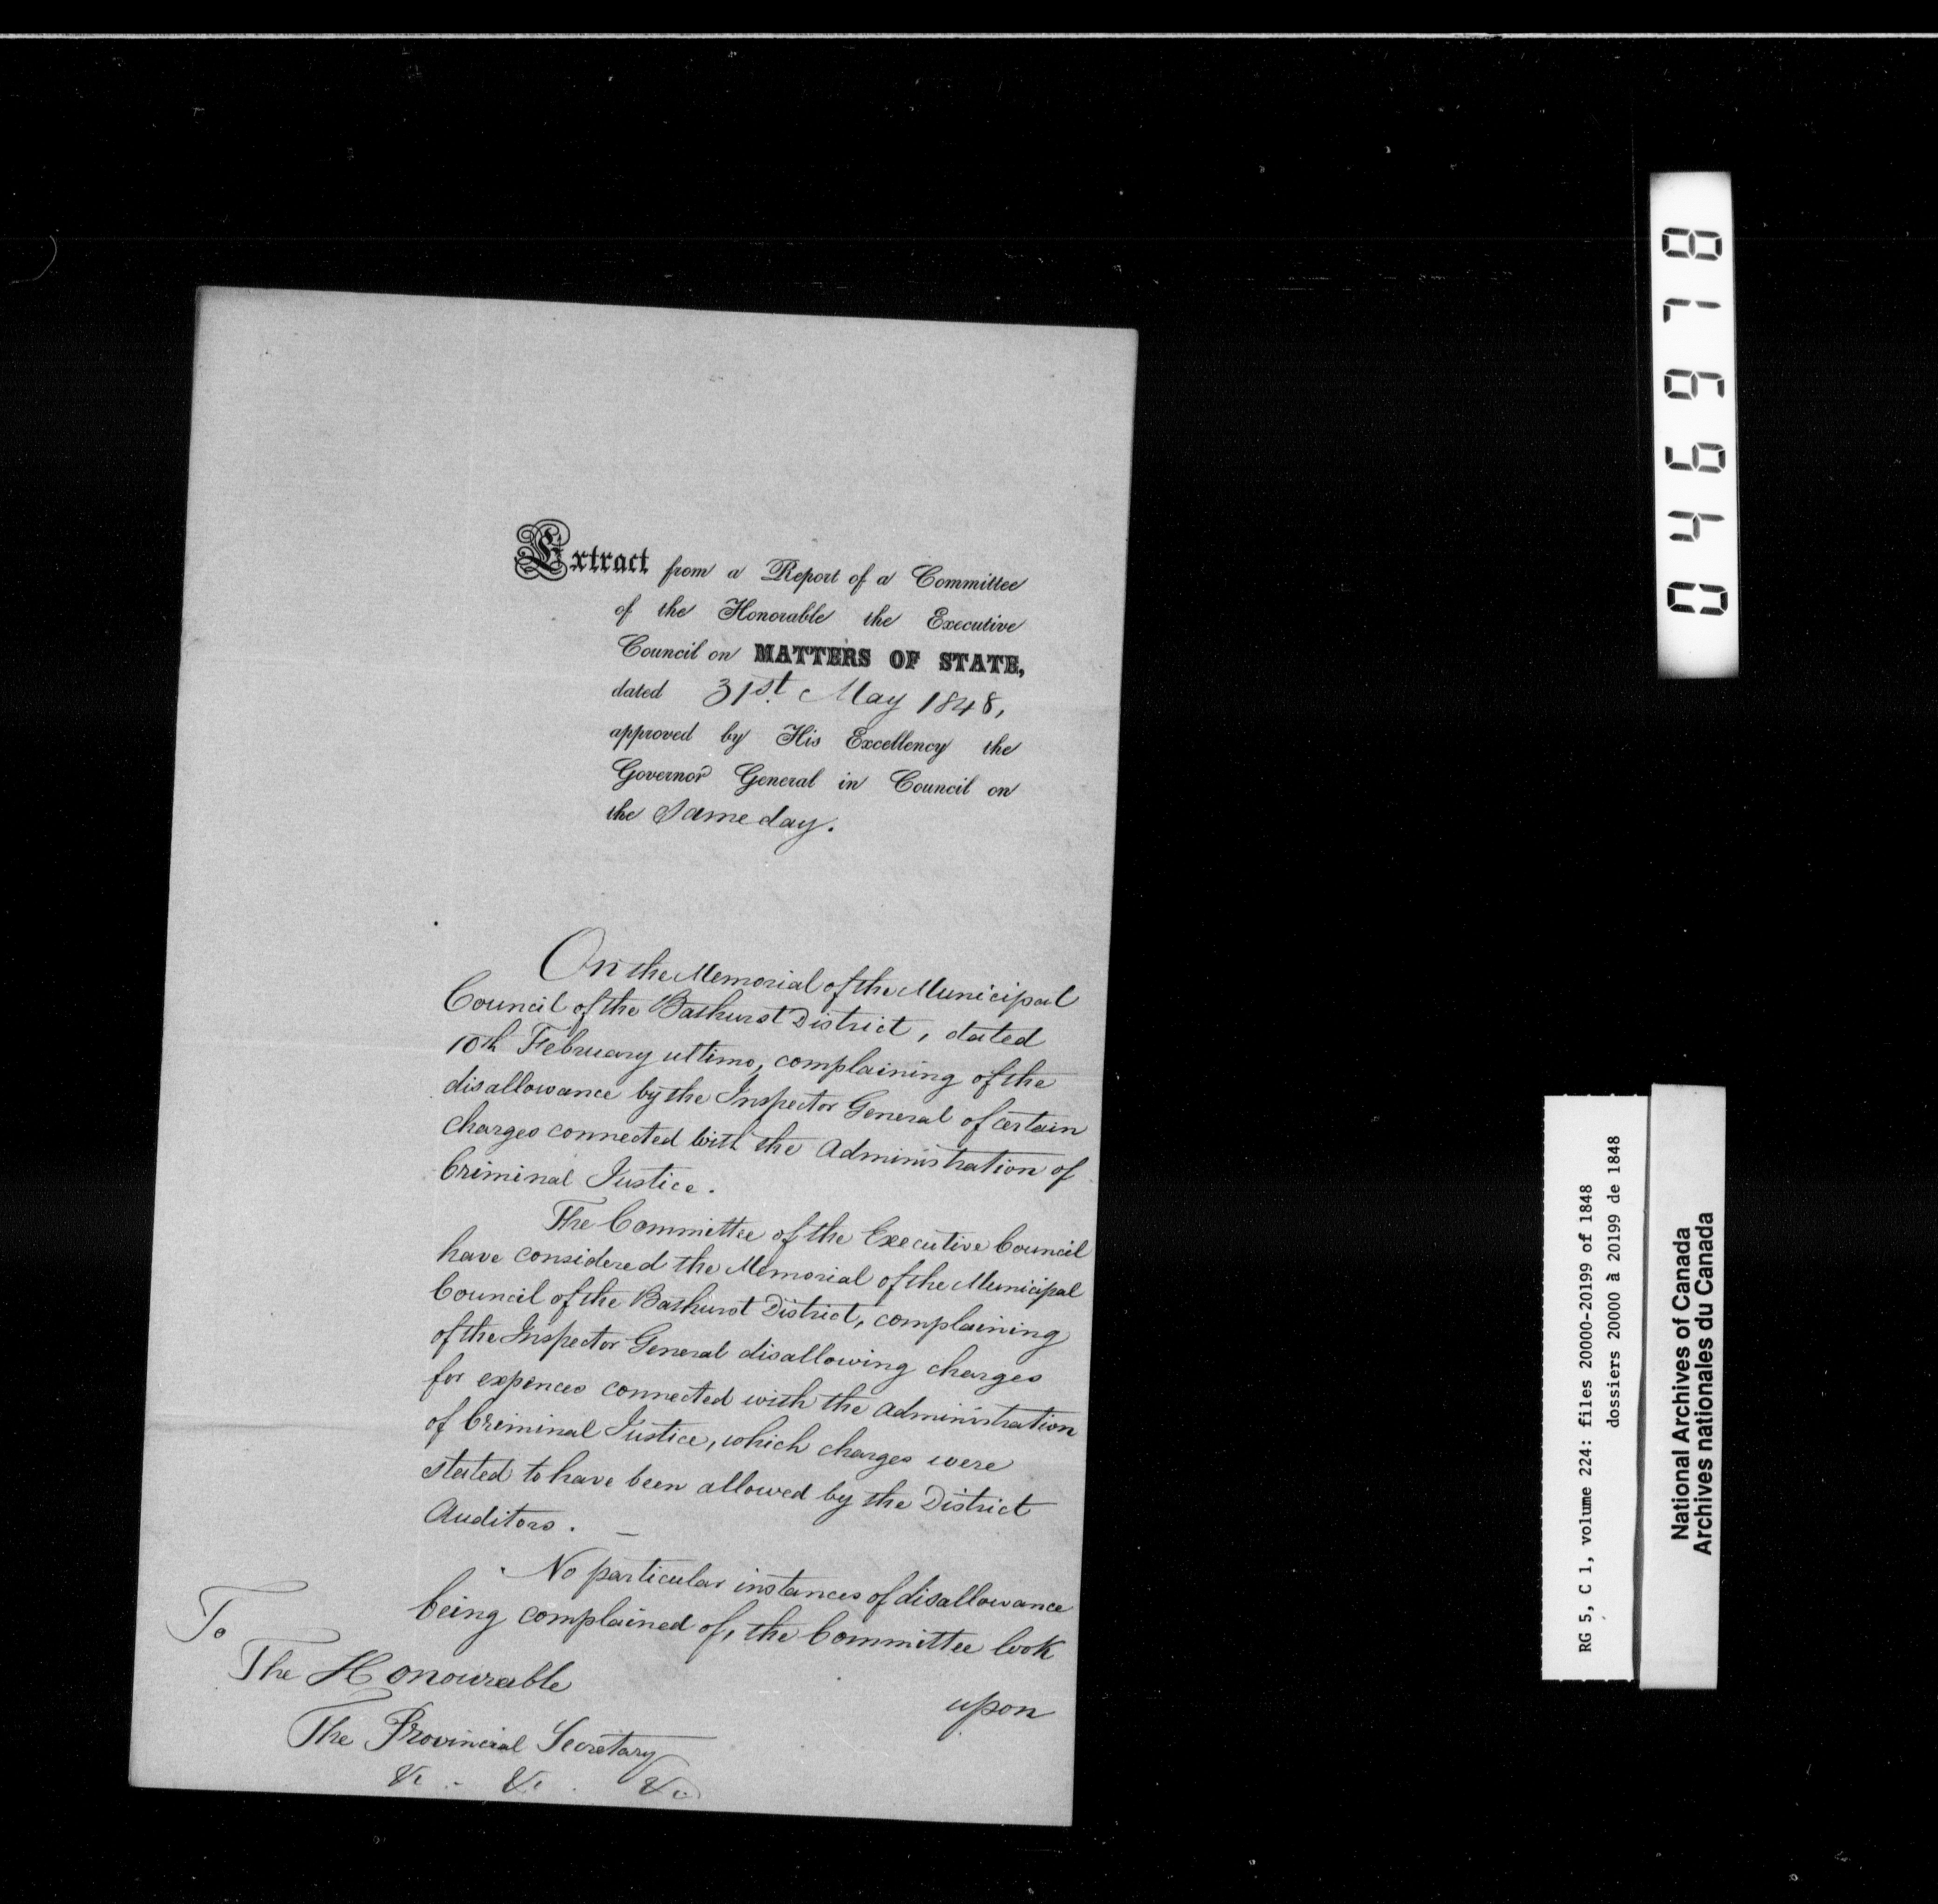 Extract from a Report of a Committee
of the Honorable the Executive
Council on MATTERS OF STATE,
dated 31st. May 1848,
approved by His Excellency the
Governor General in Council on
the Same day.
On the Memorial of the Municipal
Council of the Bathurst District, dated
10th February ultimo, complaining of the
disallowance by the Inspector General of certain
charges connected with the Administration of
Criminal Justice.
The Committee of the Executive Council
have considered the Memorial of the Municipal
Council of the Bathurst District, complaining
of the Inspector General disallowing charges
for expences connected with the administration
of Criminal Justice, which charges were
stated to have been allowed by the District
Auditors. —
No particular instances of disallowance
being complained of, the Committee look
upon
To
The Honourable
The Provincial Secretary
&c. &c. &c
046978
RG 5, C 1, volume 224: files 20000-20199 of 1848
dossiers 20000 à 20199 de 1848
National Archives of Canada
Archives nationales du Canada